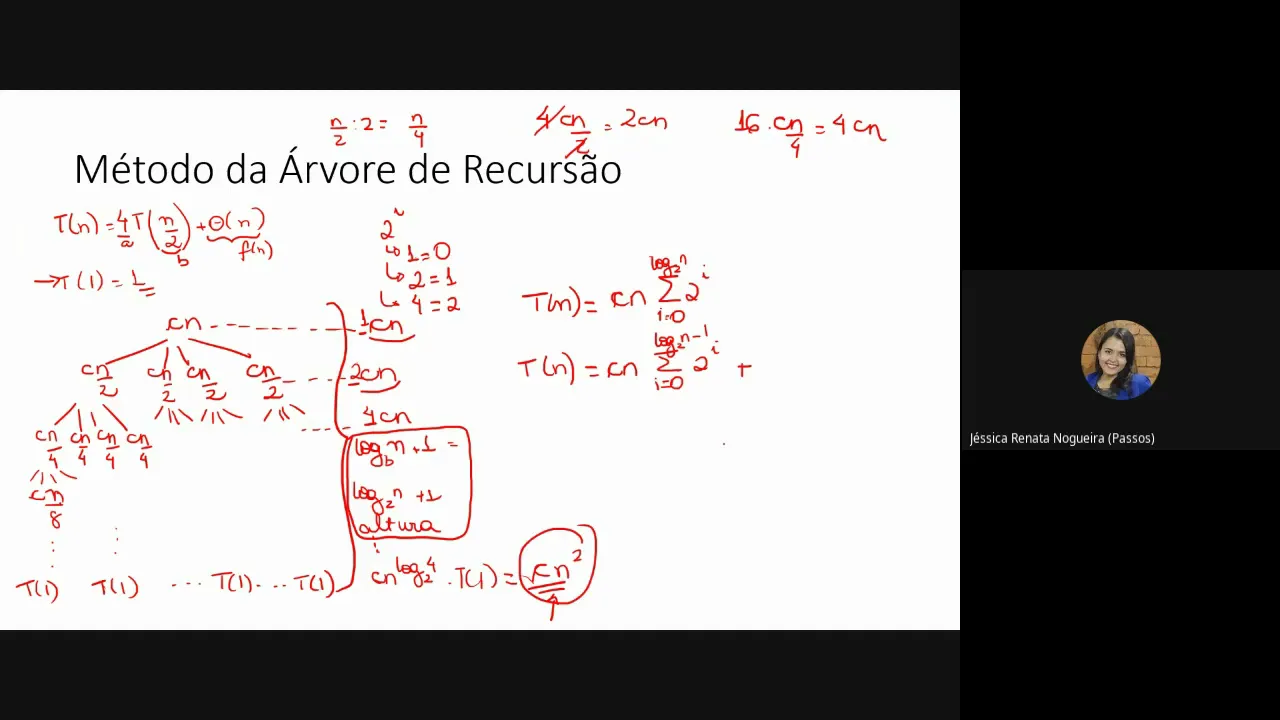 n/2 : 2 = n/4
4cn/2 = 2cn
16 . cn/4 = 4cn
Método da Árvore de Recursão
T(n) = 4T(n/2) + Θ(n)
a b f(n)
→ T(1) = 1
2^i
↳ 1 = 0
↳ 2 = 1
↳ 4 = 2
cn ------ 1cn
cn/2 cn/2 cn/2 cn/2 ---- 2cn
---- 4cn
cn/4 cn/4 cn/4 cn/4
cn/8
log_b n + 1 =
log_2 n + 1
altura
T(1) T(1) ... T(1) ... T(1)
cn^log_2 4 . T(1) = cn^2
T(n) = cn Σ_{i=0}^{log_2 n} 2^i
T(n) = cn Σ_{i=0}^{log_2 n - 1} 2^i +
Jéssica Renata Nogueira (Passos)